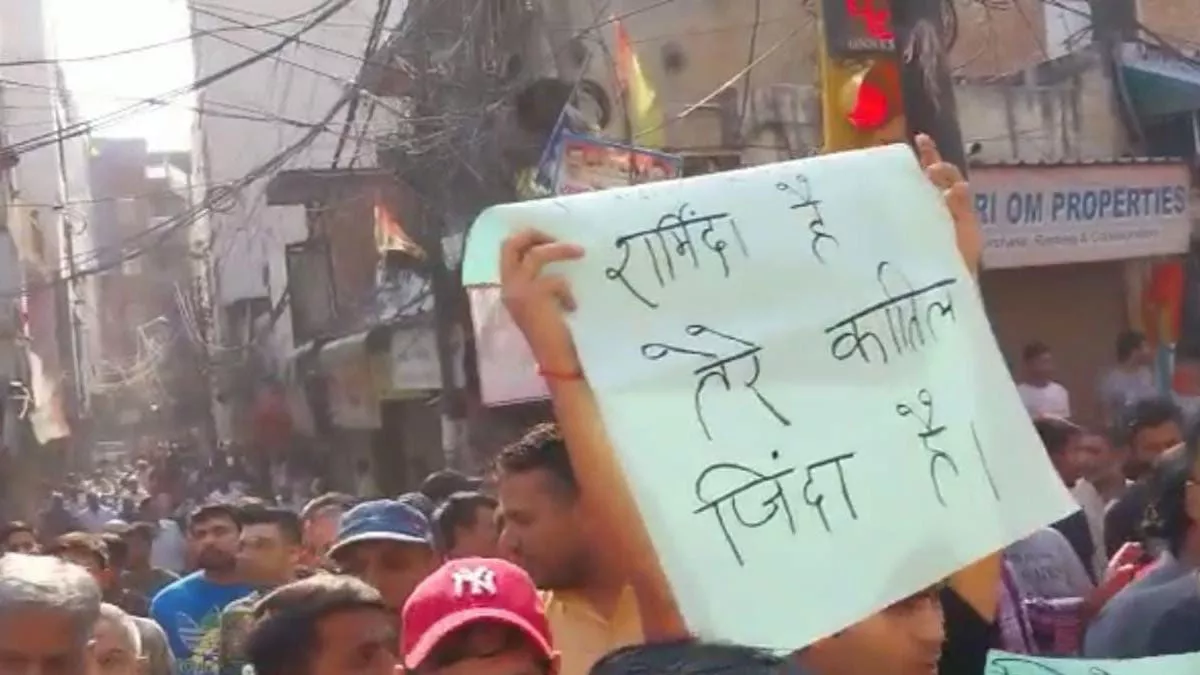 शर्मिंदा है
तेरे कातिल
जिंदा है।
RI OM PROPERTIES
NY